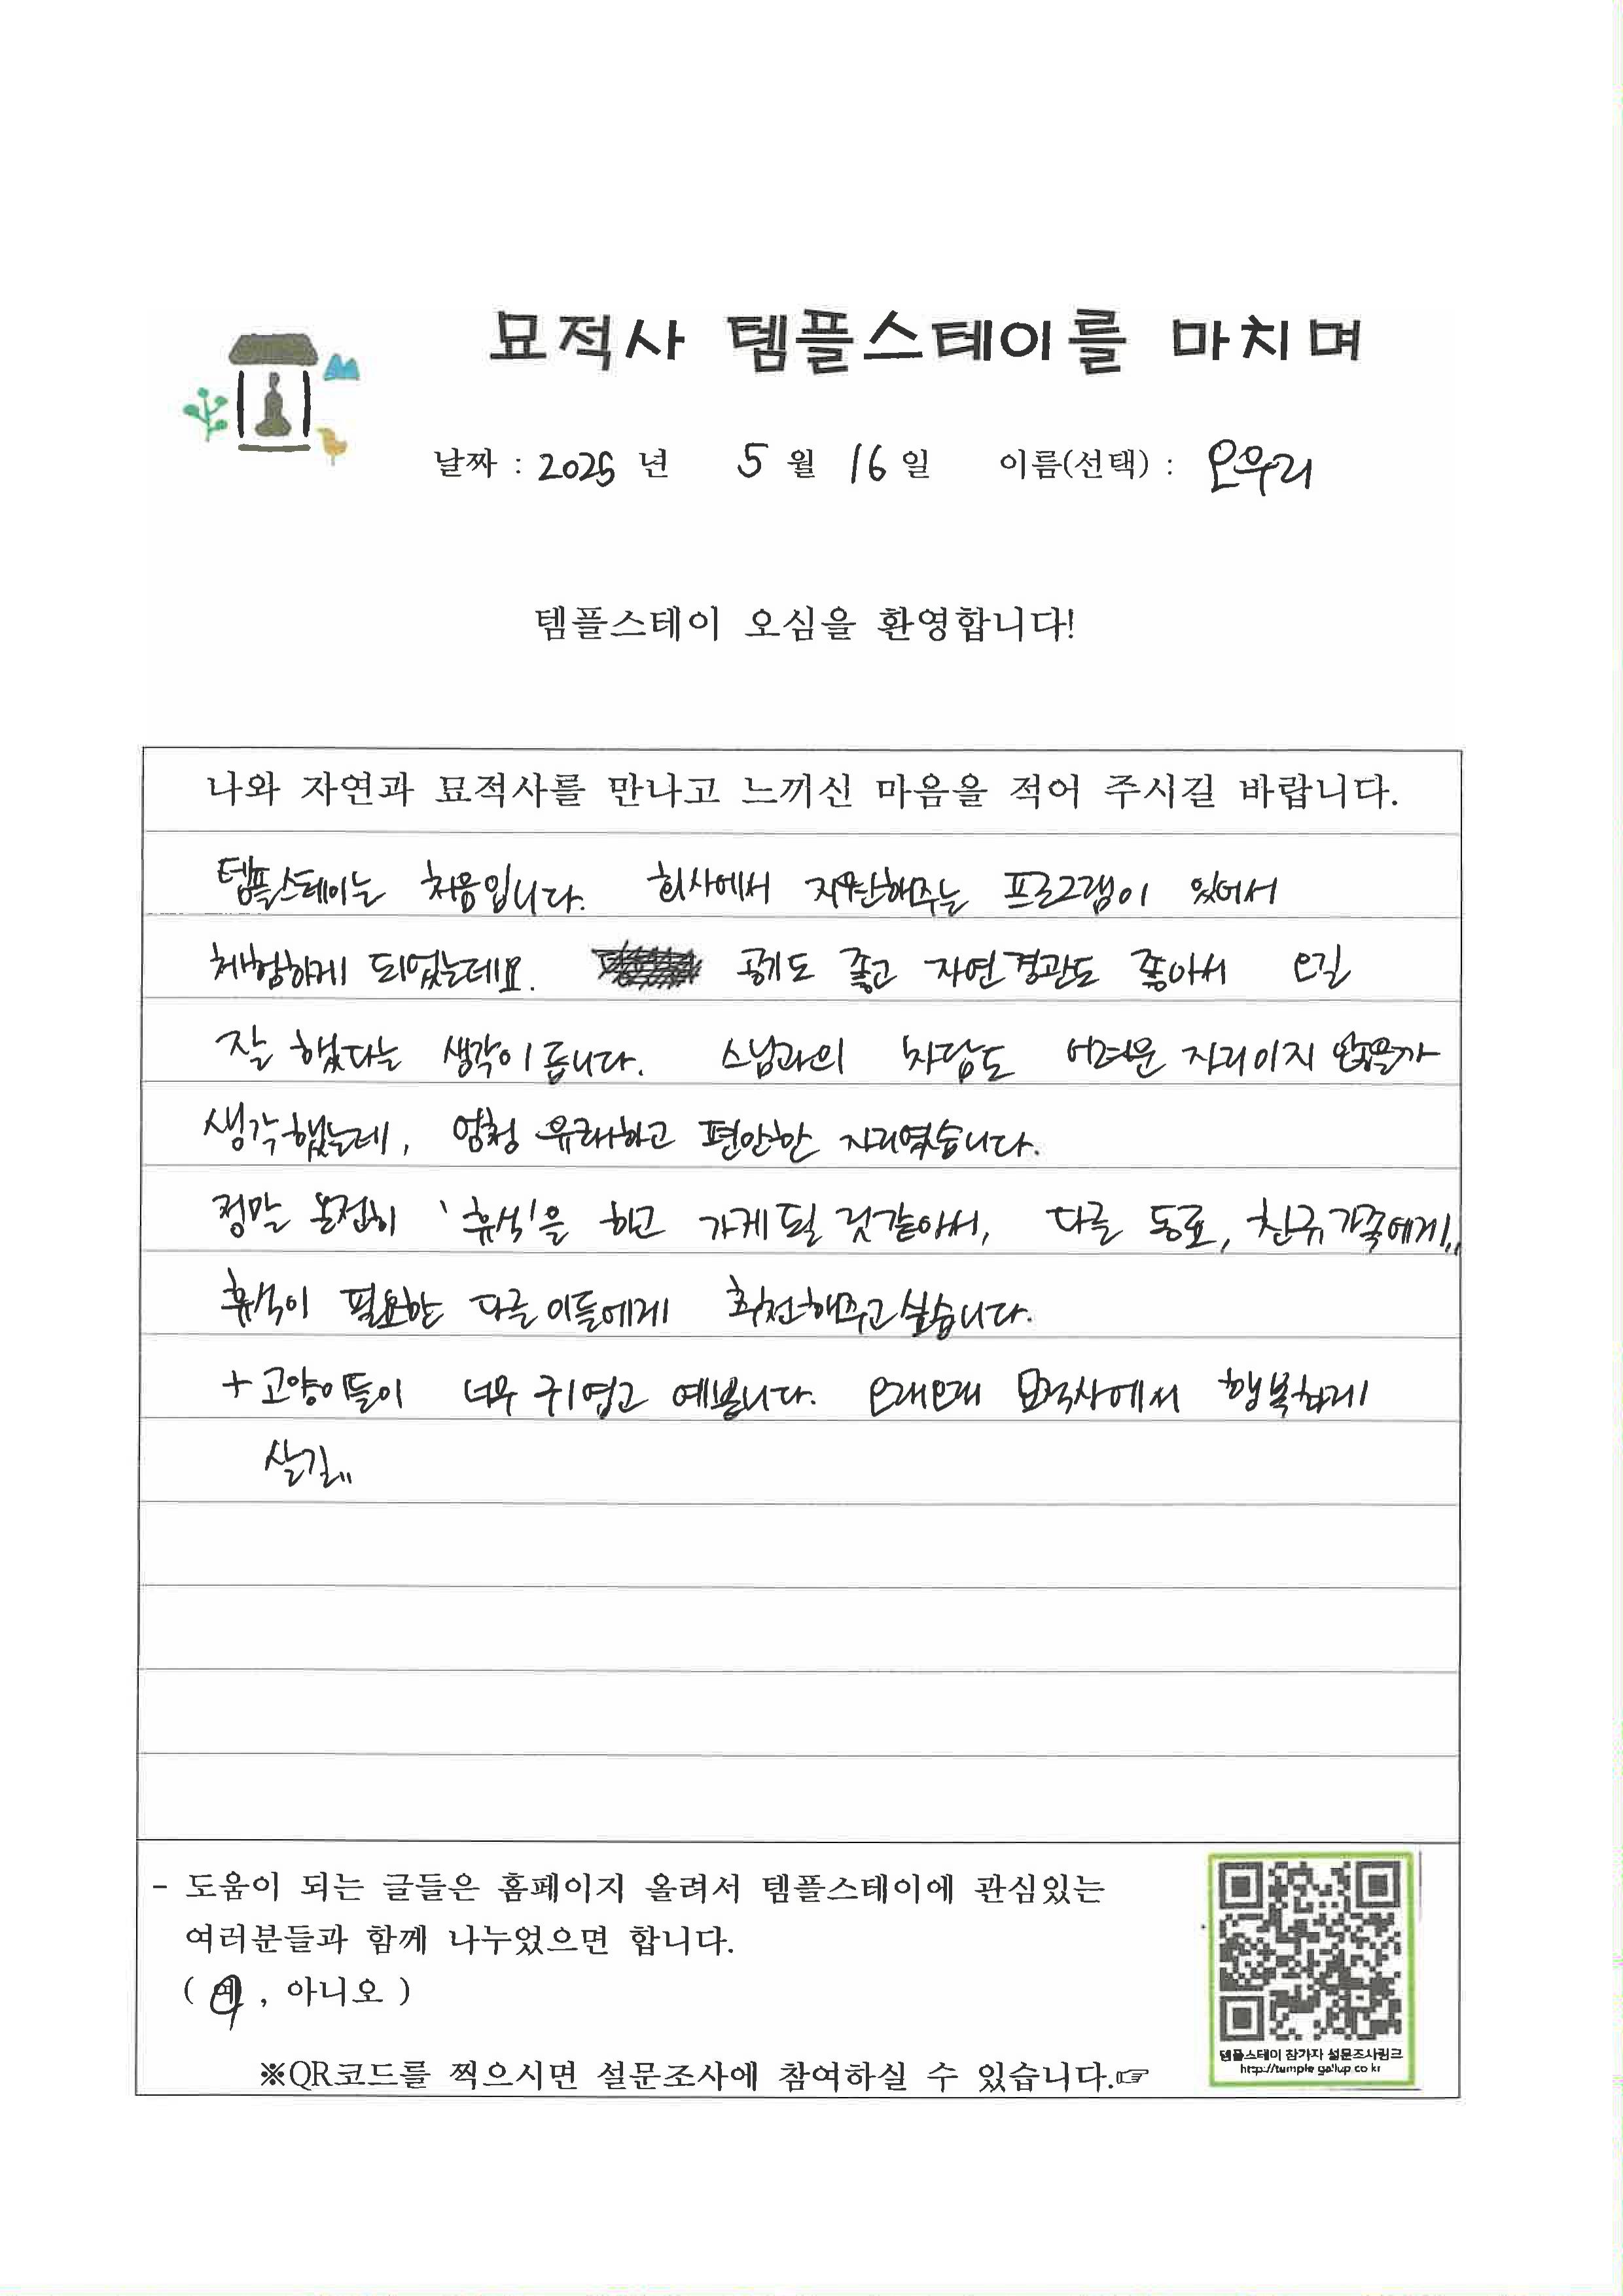 묘적사 템플스테이를 마치며
날짜 : 2025 년 5 월 16 일 이름(선택) : 오우리
템플스테이 오심을 환영합니다!
나와 자연과 묘적사를 만나고 느끼신 마음을 적어 주시길 바랍니다.
템플스테이는 처음입니다. 회사에서 지원해주는 프로그램이 있어서
체험하게 되었는데요. 공기도 좋고 자연경관도 좋아서 오길
잘 했다는 생각이 듭니다. 스님과의 차담도 어려운 자리이지 않을까
생각했는데, 엄청 유쾌하고 편안한 자리였습니다.
정말 온전히 '휴식'을 하고 가게 될 것같아서, 다른 동료, 친구, 가족에게..
휴식이 필요한 다른 이들에게 추천해주고 싶습니다.
+ 고양이들이 너무 귀엽고 예쁩니다. 오래오래 묘적사에서 행복하게
살길..
- 도움이 되는 글들은 홈페이지 올려서 템플스테이에 관심있는
여러분들과 함께 나누었으면 합니다.
( 예 , 아니오 )
※QR코드를 찍으시면 설문조사에 참여하실 수 있습니다.☞
템플스테이 참가자 설문조사링크
http://temple.gallup.co.kr